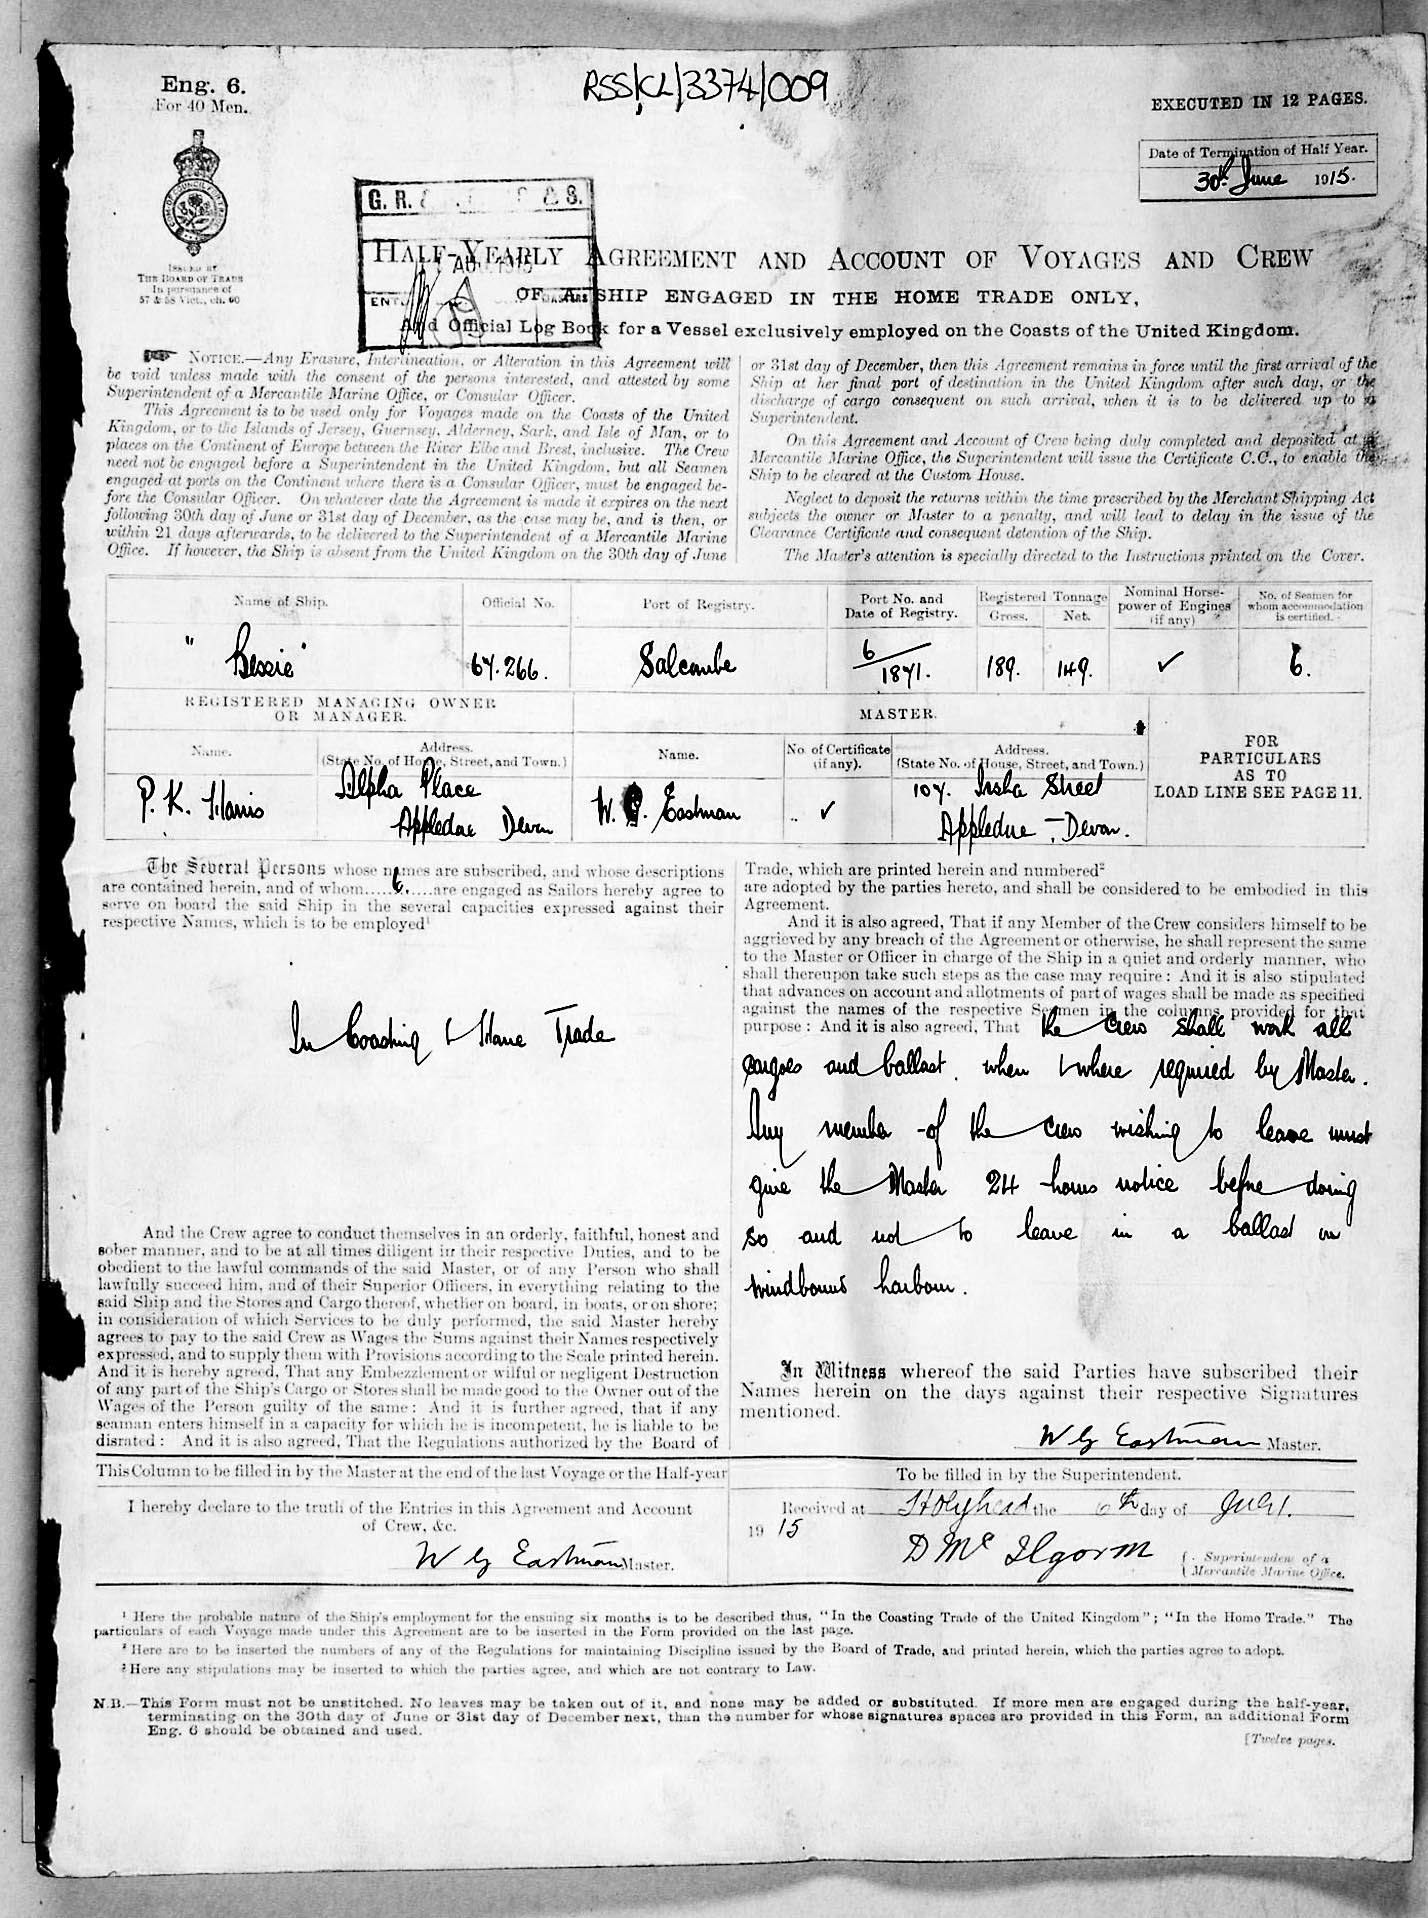 Eng. 6.
For 40 Men.
RSS/CL/3374/009
EXECUTED IN 12 PAGES.
Date of Termination of Half Year.
30th June 1915.
ISSUED BY
THE BOARD OF TRADE
In pursuance of
57 & 58 Vict., ch. 60
G. R. & S.
HALF-YEARLY AGREEMENT AND ACCOUNT OF VOYAGES AND CREW
OF A SHIP ENGAGED IN THE HOME TRADE ONLY,
And Official Log Book for a Vessel exclusively employed on the Coasts of the United Kingdom.
NOTICE.—Any Erasure, Interlineation, or Alteration in this Agreement will
be void unless made with the consent of the persons interested, and attested by some
Superintendent of a Mercantile Marine Office, or Consular Officer.
This Agreement is to be used only for Voyages made on the Coasts of the United
Kingdom, or to the Islands of Jersey, Guernsey, Alderney, Sark, and Isle of Man, or to
places on the Continent of Europe between the River Elbe and Brest, inclusive. The Crew
need not be engaged before a Superintendent in the United Kingdom, but all Seamen
engaged at ports on the Continent where there is a Consular Officer, must be engaged be-
fore the Consular Officer. On whatever date the Agreement is made it expires on the next
following 30th day of June or 31st day of December, as the case may be, and is then, or
within 21 days afterwards, to be delivered to the Superintendent of a Mercantile Marine
Office. If however, the Ship is absent from the United Kingdom on the 30th day of June
or 31st day of December, then this Agreement remains in force until the first arrival of the
Ship at her final port of destination in the United Kingdom after such day, or the
discharge of cargo consequent on such arrival, when it is to be delivered up to a
Superintendent.
On this Agreement and Account of Crew being duly completed and deposited at a
Mercantile Marine Office, the Superintendent will issue the Certificate C.C., to enable the
Ship to be cleared at the Custom House.
Neglect to deposit the returns within the time prescribed by the Merchant Shipping Act
subjects the owner or Master to a penalty, and will lead to delay in the issue of the
Clearance Certificate and consequent detention of the Ship.
The Master's attention is specially directed to the Instructions printed on the Cover.
Name of Ship. Official No. Port of Registry. Port No. and Date of Registry. Registered Tonnage Gross. Net. Nominal Horse-power of Engines (if any) No. of Seamen for whom accommodation is certified.
"Bessie" 67.266. Salcombe 6/1871. 189. 149. ✓ 6.
REGISTERED MANAGING OWNER
OR MANAGER.
MASTER.
Name. Address. (State No. of House, Street, and Town.) Name. No. of Certificate (if any). Address. (State No. of House, Street, and Town.)
FOR
PARTICULARS
AS TO
LOAD LINE SEE PAGE 11.
P. K. Harris Alpha Place W. G. Eastman ✓ 107. Irsha Street
Appledore Devon Appledore - Devon.
The Several Persons whose names are subscribed, and whose descriptions
are contained herein, and of whom 6. are engaged as Sailors hereby agree to
serve on board the said Ship in the several capacities expressed against their
respective Names, which is to be employed¹
In Coasting & Home Trade
And the Crew agree to conduct themselves in an orderly, faithful, honest and
sober manner, and to be at all times diligent in their respective Duties, and to be
obedient to the lawful commands of the said Master, or of any Person who shall
lawfully succeed him, and of their Superior Officers, in everything relating to the
said Ship and the Stores and Cargo thereof, whether on board, in boats, or on shore;
in consideration of which Services to be duly performed, the said Master hereby
agrees to pay to the said Crew as Wages the Sums against their Names respectively
expressed, and to supply them with Provisions according to the Scale printed herein.
And it is hereby agreed, That any Embezzlement or wilful or negligent Destruction
of any part of the Ship's Cargo or Stores shall be made good to the Owner out of the
Wages of the Person guilty of the same: And it is further agreed, that if any
seaman enters himself in a capacity for which he is incompetent, he is liable to be
disrated: And it is also agreed, That the Regulations authorized by the Board of
Trade, which are printed herein and numbered²
are adopted by the parties hereto, and shall be considered to be embodied in this
Agreement.
And it is also agreed, That if any Member of the Crew considers himself to be
aggrieved by any breach of the Agreement or otherwise, he shall represent the same
to the Master or Officer in charge of the Ship in a quiet and orderly manner, who
shall thereupon take such steps as the case may require: And it is also stipulated
that advances on account and allotments of part of wages shall be made as specified
against the names of the respective Seamen in the columns provided for that
purpose: And it is also agreed, That the Crew shall work all
cargoes and ballast. when & where required by Master.
Any member of the crew wishing to leave must
give the Master 24 hours notice before doing
so and not to leave in a ballast or
windbound harbour.
In Witness whereof the said Parties have subscribed their
Names herein on the days against their respective Signatures
mentioned.
W G Eastman Master.
This Column to be filled in by the Master at the end of the last Voyage or the Half-year
I hereby declare to the truth of the Entries in this Agreement and Account
of Crew, &c.
W G Eastman Master.
To be filled in by the Superintendent.
Received at Holyhead the 6th day of July.
1915
D Mc Ilgorm
Superintendent of a
Mercantile Marine Office.
¹ Here the probable nature of the Ship's employment for the ensuing six months is to be described thus, "In the Coasting Trade of the United Kingdom"; "In the Home Trade." The
particulars of each Voyage made under this Agreement are to be inserted in the Form provided on the last page.
² Here are to be inserted the numbers of any of the Regulations for maintaining Discipline issued by the Board of Trade, and printed herein, which the parties agree to adopt.
³ Here any stipulations may be inserted to which the parties agree, and which are not contrary to Law.
N.B.—This Form must not be unstitched. No leaves may be taken out of it, and none may be added or substituted. If more men are engaged during the half-year,
terminating on the 30th day of June or 31st day of December next, than the number for whose signatures spaces are provided in this Form, an additional Form
Eng. 6 should be obtained and used.
[Twelve pages.